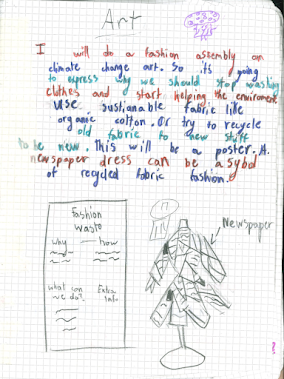 Art
I will do a fashion assembly on
climate change art. So its going
to express why we should stop washing
clothes and start helping the enviroment.
Use sustianable fabric like
organic cotton. Or try to recycle
old fabric to new stiffs
to be new. This will be a poster. A
newspaper dress can be a sybol
of recycled fabric fashion.
Fashion
Waste
why how
what can
we do?
Extra
Info.
Newspaper